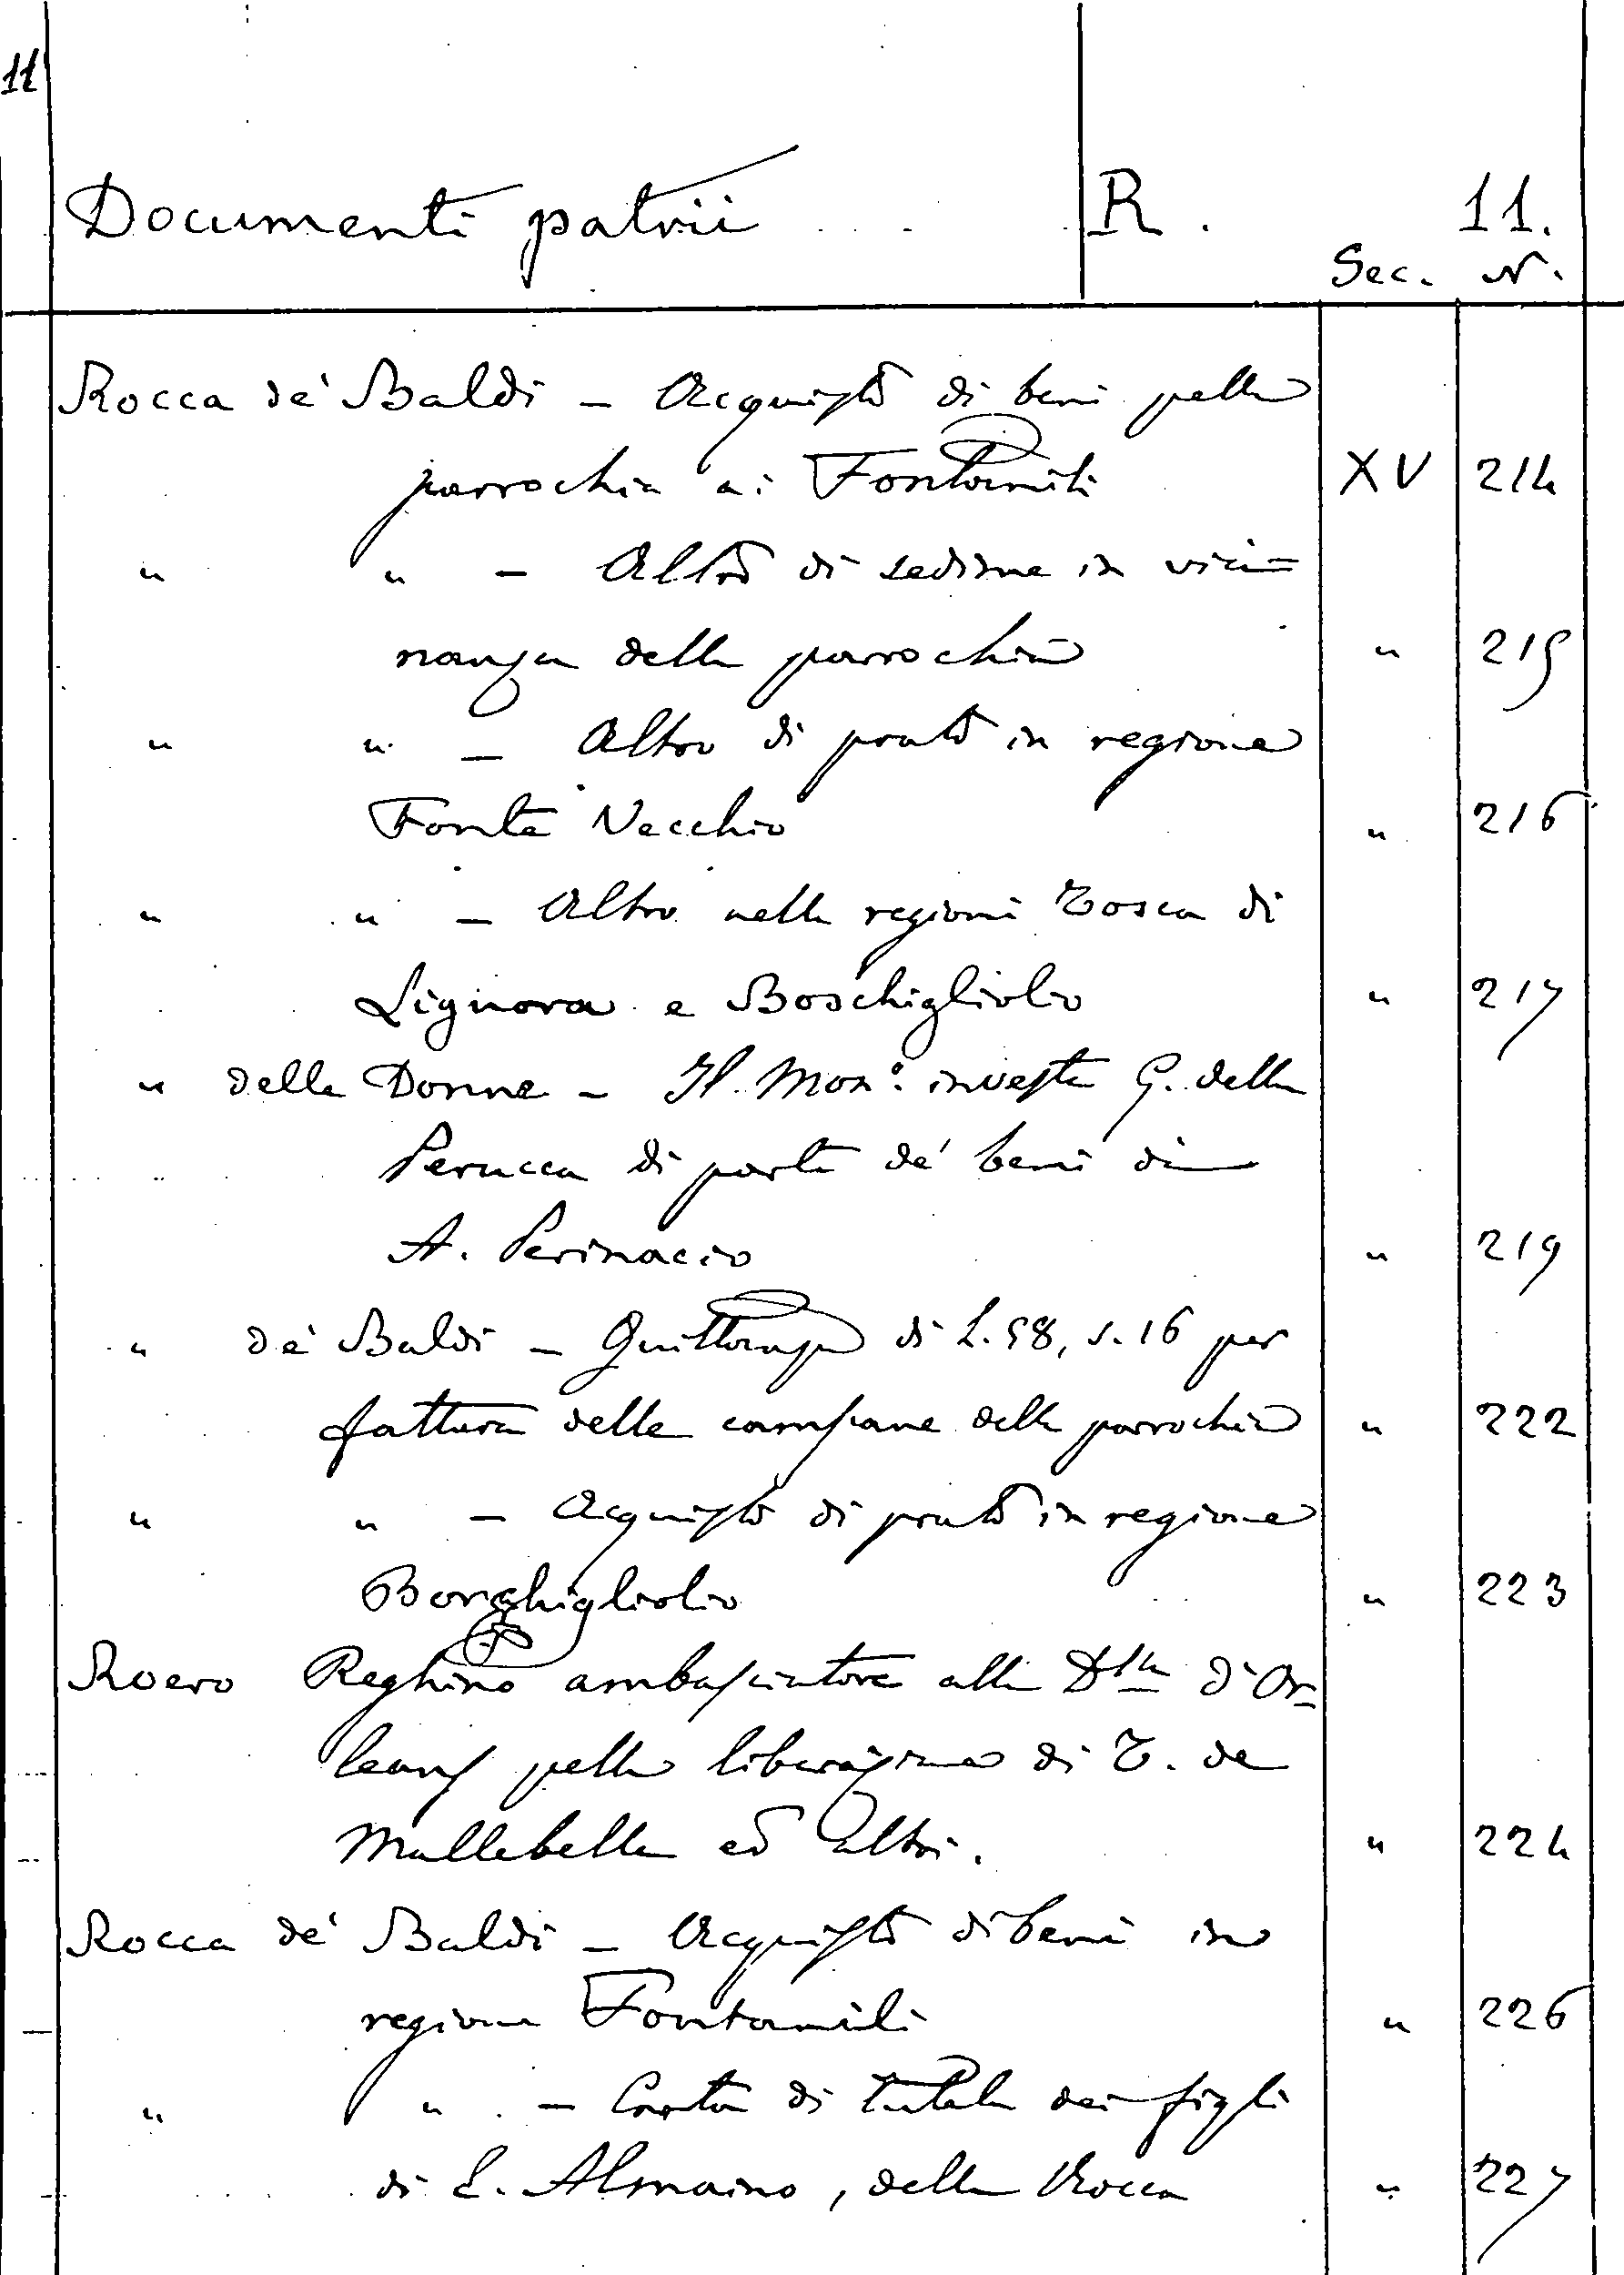 11
Documenti patrii R. 11.
Sec. N.
Rocca de' Baldi - Acquisto di beni pella
parrochia ai Fontamili XV 214
" " - Altro di sedime in vici=
nanza della parrochia " 215
" " - Altro di prato in regione
Fonte Vecchio " 216
" " - Altro nelle regioni Tosca di
Lignora e Boschigliolio " 217
" delle Donne - Il Mon.o investe G. della
Perucca di parte de' beni di
A. Perinacio " 219
" de' Baldi - Quittanza di L. 58, s. 16 per
fattura delle campane della parrochia " 222
" " - Acquisto di prato in regione
Borghigliolio " 223
Roero Reghino ambasciatore alla D.ssa d'Or=
leans pella liberazione di T. de
Mallebella ed altri. " 224
Rocca de' Baldi - Acquisto di beni in
regione Fontamili " 226
" " - Carta di tutela dei figli
di E. Almaino, della Rocca " 227